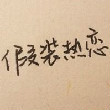 假装热恋